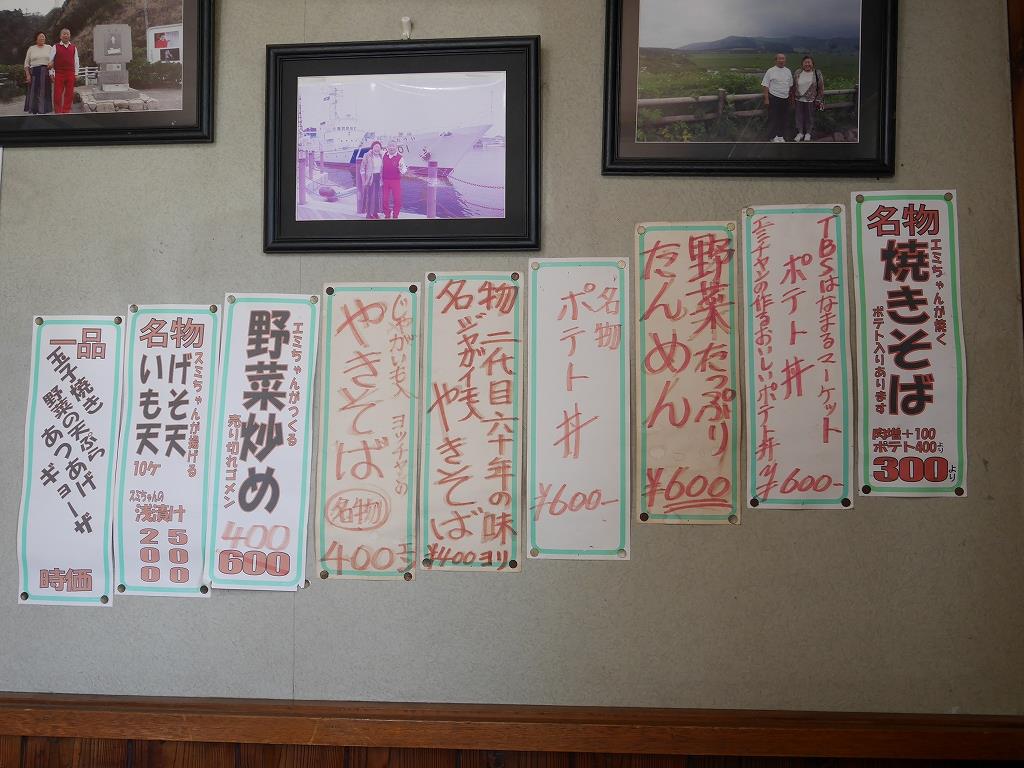 名物
エミちゃんが焼く
焼きそば
ポテト入りあります
ポテト400より
300より
TBSはなまるマーケット
ポテト丼
エミチャンの作るおいしいポテト丼
¥600-
野菜たっぷり
たんめん
¥600
名物
ポテト丼
¥600-
名物 二代目六十年の味
ジャガイモ入
やきそば
¥400ヨリ
じゃがいも入 ヨッチャンの
やきそば
名物
400エン
エミちゃんがつくる
野菜炒め
売り切れゴメン
400
600
名物
スミちゃんが揚げる
げそ天
いも天
10ケ
スミちゃんの
浅漬け
500
200
一品
玉子焼き 天ぷら
野菜の
あつあげ
ギョーザ
時価